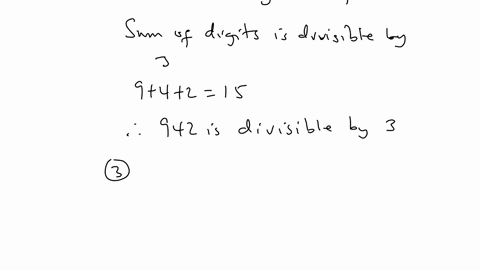 Sum of digits is divisible by
3
9+4+2=15
∴ 942 is divisible by 3
③